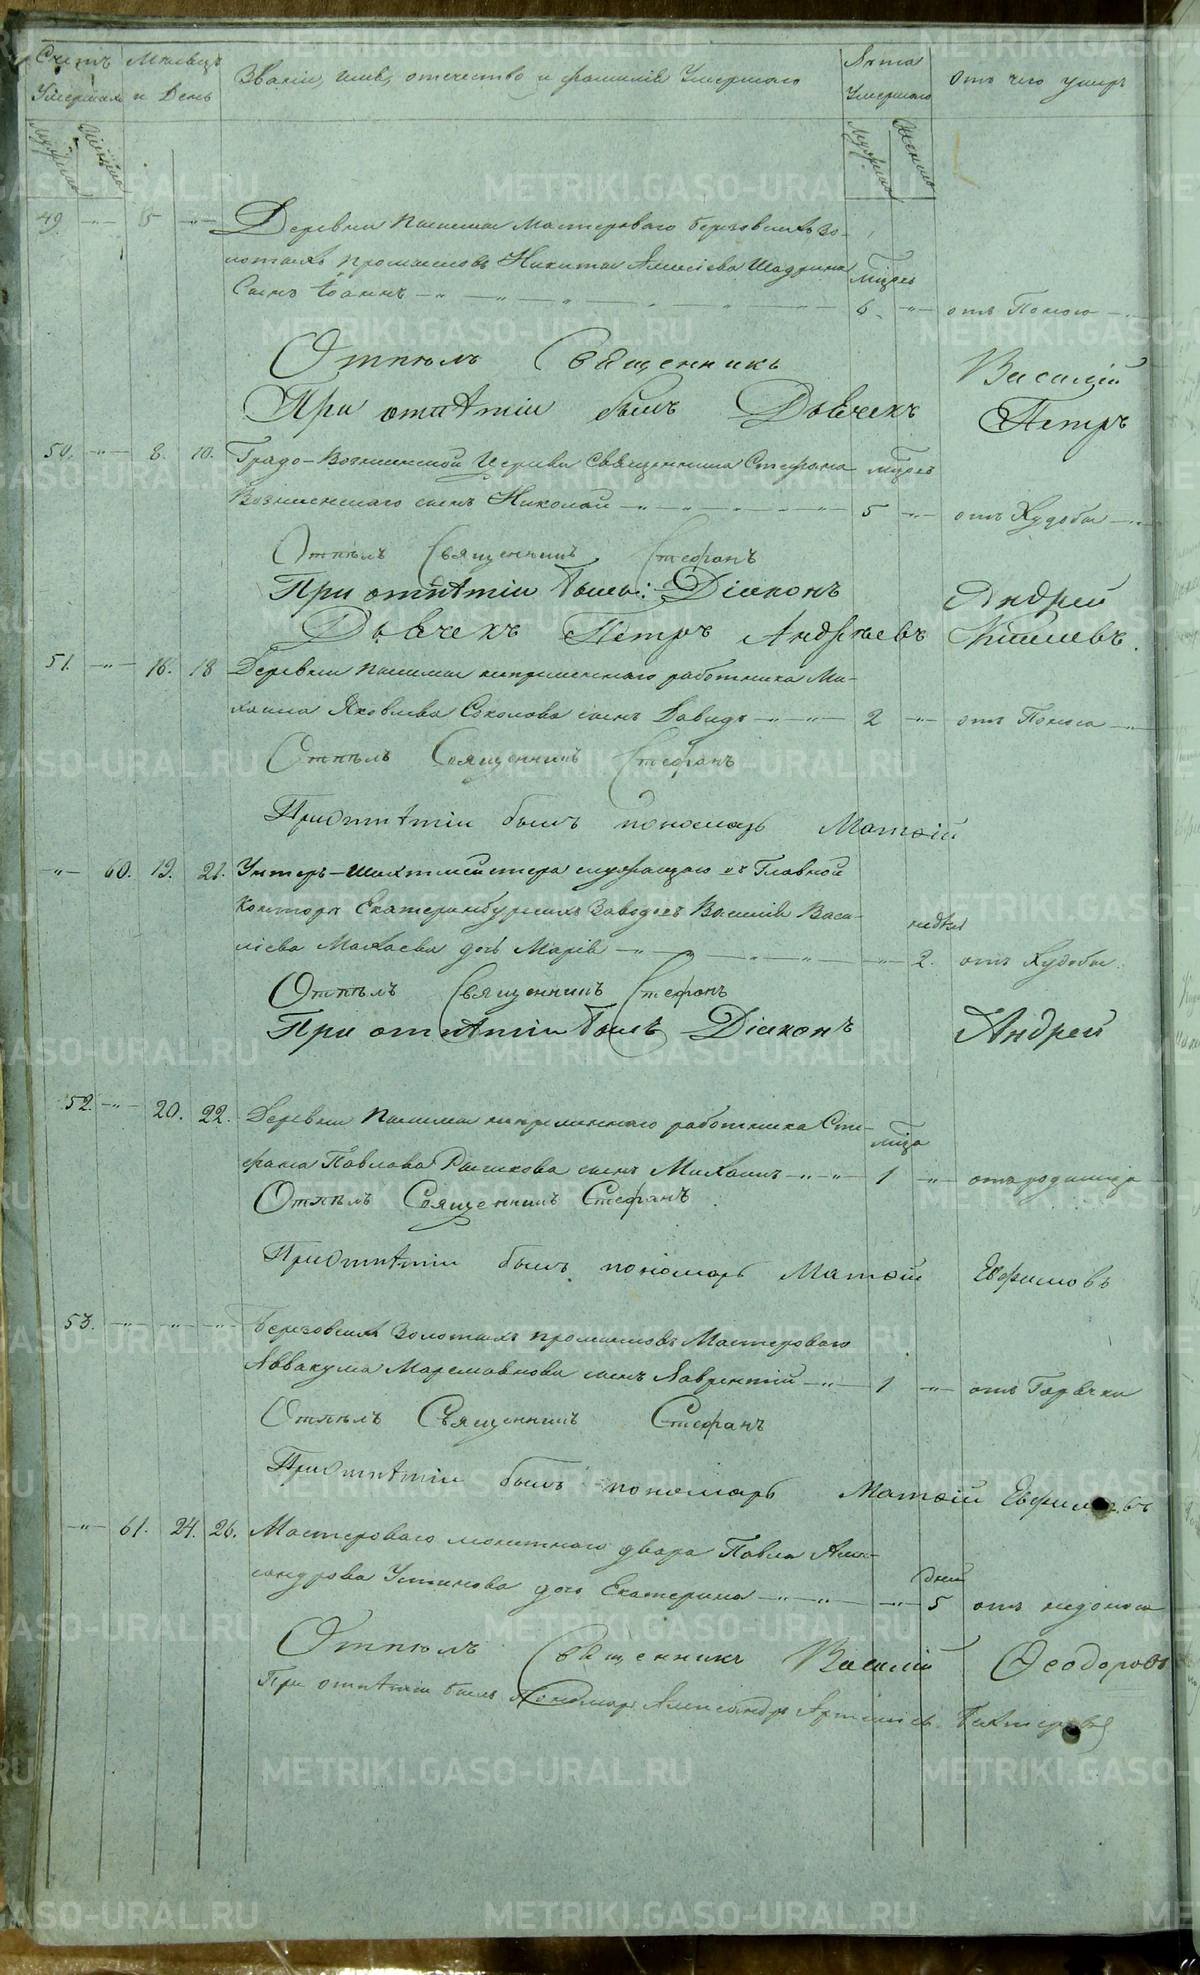 Счетъ Умершихъ
Месяцъ и День
Званіе, имя, отечество и фамилія Умершаго
Лета Умершаго
Отъ чего умеръ
Мужеска Женска
Мужеска Женска
49. 5
Деревни Мастероваго березовскихъ зо-
лотыхъ промысловъ Никиты Алексіева Шадрина
Сынъ Іоаннъ
6 отъ Поноса
Отпѣлъ Священникъ Василій
При отпѣтіи былъ Дьячекъ Петръ
50. 8. 10. Градо-Вознесенской Церкви Священника Стефана
Вознесенскаго сынъ Николай 5 отъ Худобы
Отпѣлъ Священникъ Стефанъ
При отпѣтіи были: Діаконъ Андрей
Дьячекъ Петръ Андрѣевъ
51. 16. 18 Деревни непременнаго работника Ми-
хаила Яковлева Соколова сынъ Давидъ 2 отъ Поноса
Отпѣлъ Священникъ Стефанъ
При отпѣтіи былъ пономарь Матѳій
60. 19. 21. Унтеръ-Шихтмейстера служащаго въ Главной
Конторѣ Екатеринбургскихъ Заводовъ Василія Васи-
ліева дочь Марія
недѣль
2. отъ Худобы.
Отпѣлъ Священникъ Стефанъ
При отпѣтіи былъ Діаконъ Андрей
52. 20. 22. Деревни непременнаго работника Сте-
фана Павлова сынъ Михаилъ 1 отъ родимца
Отпѣлъ Священникъ Стефанъ
При отпѣтіи былъ пономарь Матѳій Евфимовъ
53. Березовскихъ Золотыхъ промысловъ Мастероваго
Аввакума сынъ Лаврентій 1 отъ Горячки
Отпѣлъ Священникъ Стефанъ
При отпѣтіи былъ пономарь Матѳій Евфимовъ
61. 24. 26. Мастероваго монетнаго двора Павла Алек-
сандрова Устинова дочь Екатерина
дней
5 отъ недоноса
Отпѣлъ Священникъ Василій Ѳеодоровъ
При отпѣтіи былъ Пономарь Александръ
METRIKI.GASO-URAL.RU